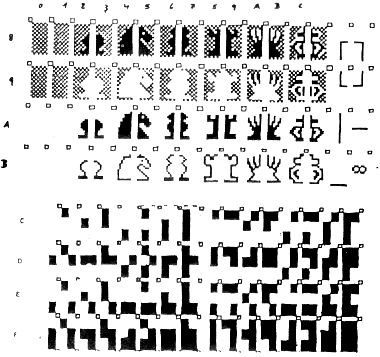 0 1 2 3 4 5 6 7 5 9 A B C
8
9
A
B
C
D
E
F